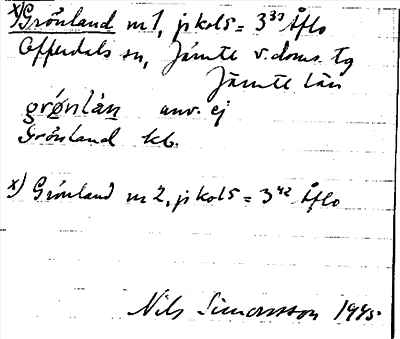 x) Grönland nr 1, jr kol 5 = 3³³ Åflo
Offerdals sn, Jämte v. doms. tg
Jämte län
grǿnlàn anv. ej
Grönland kb.
x) Grönland nr 2, jr kol 5 = 3⁴² Åflo
Nils Simonsson 1945.